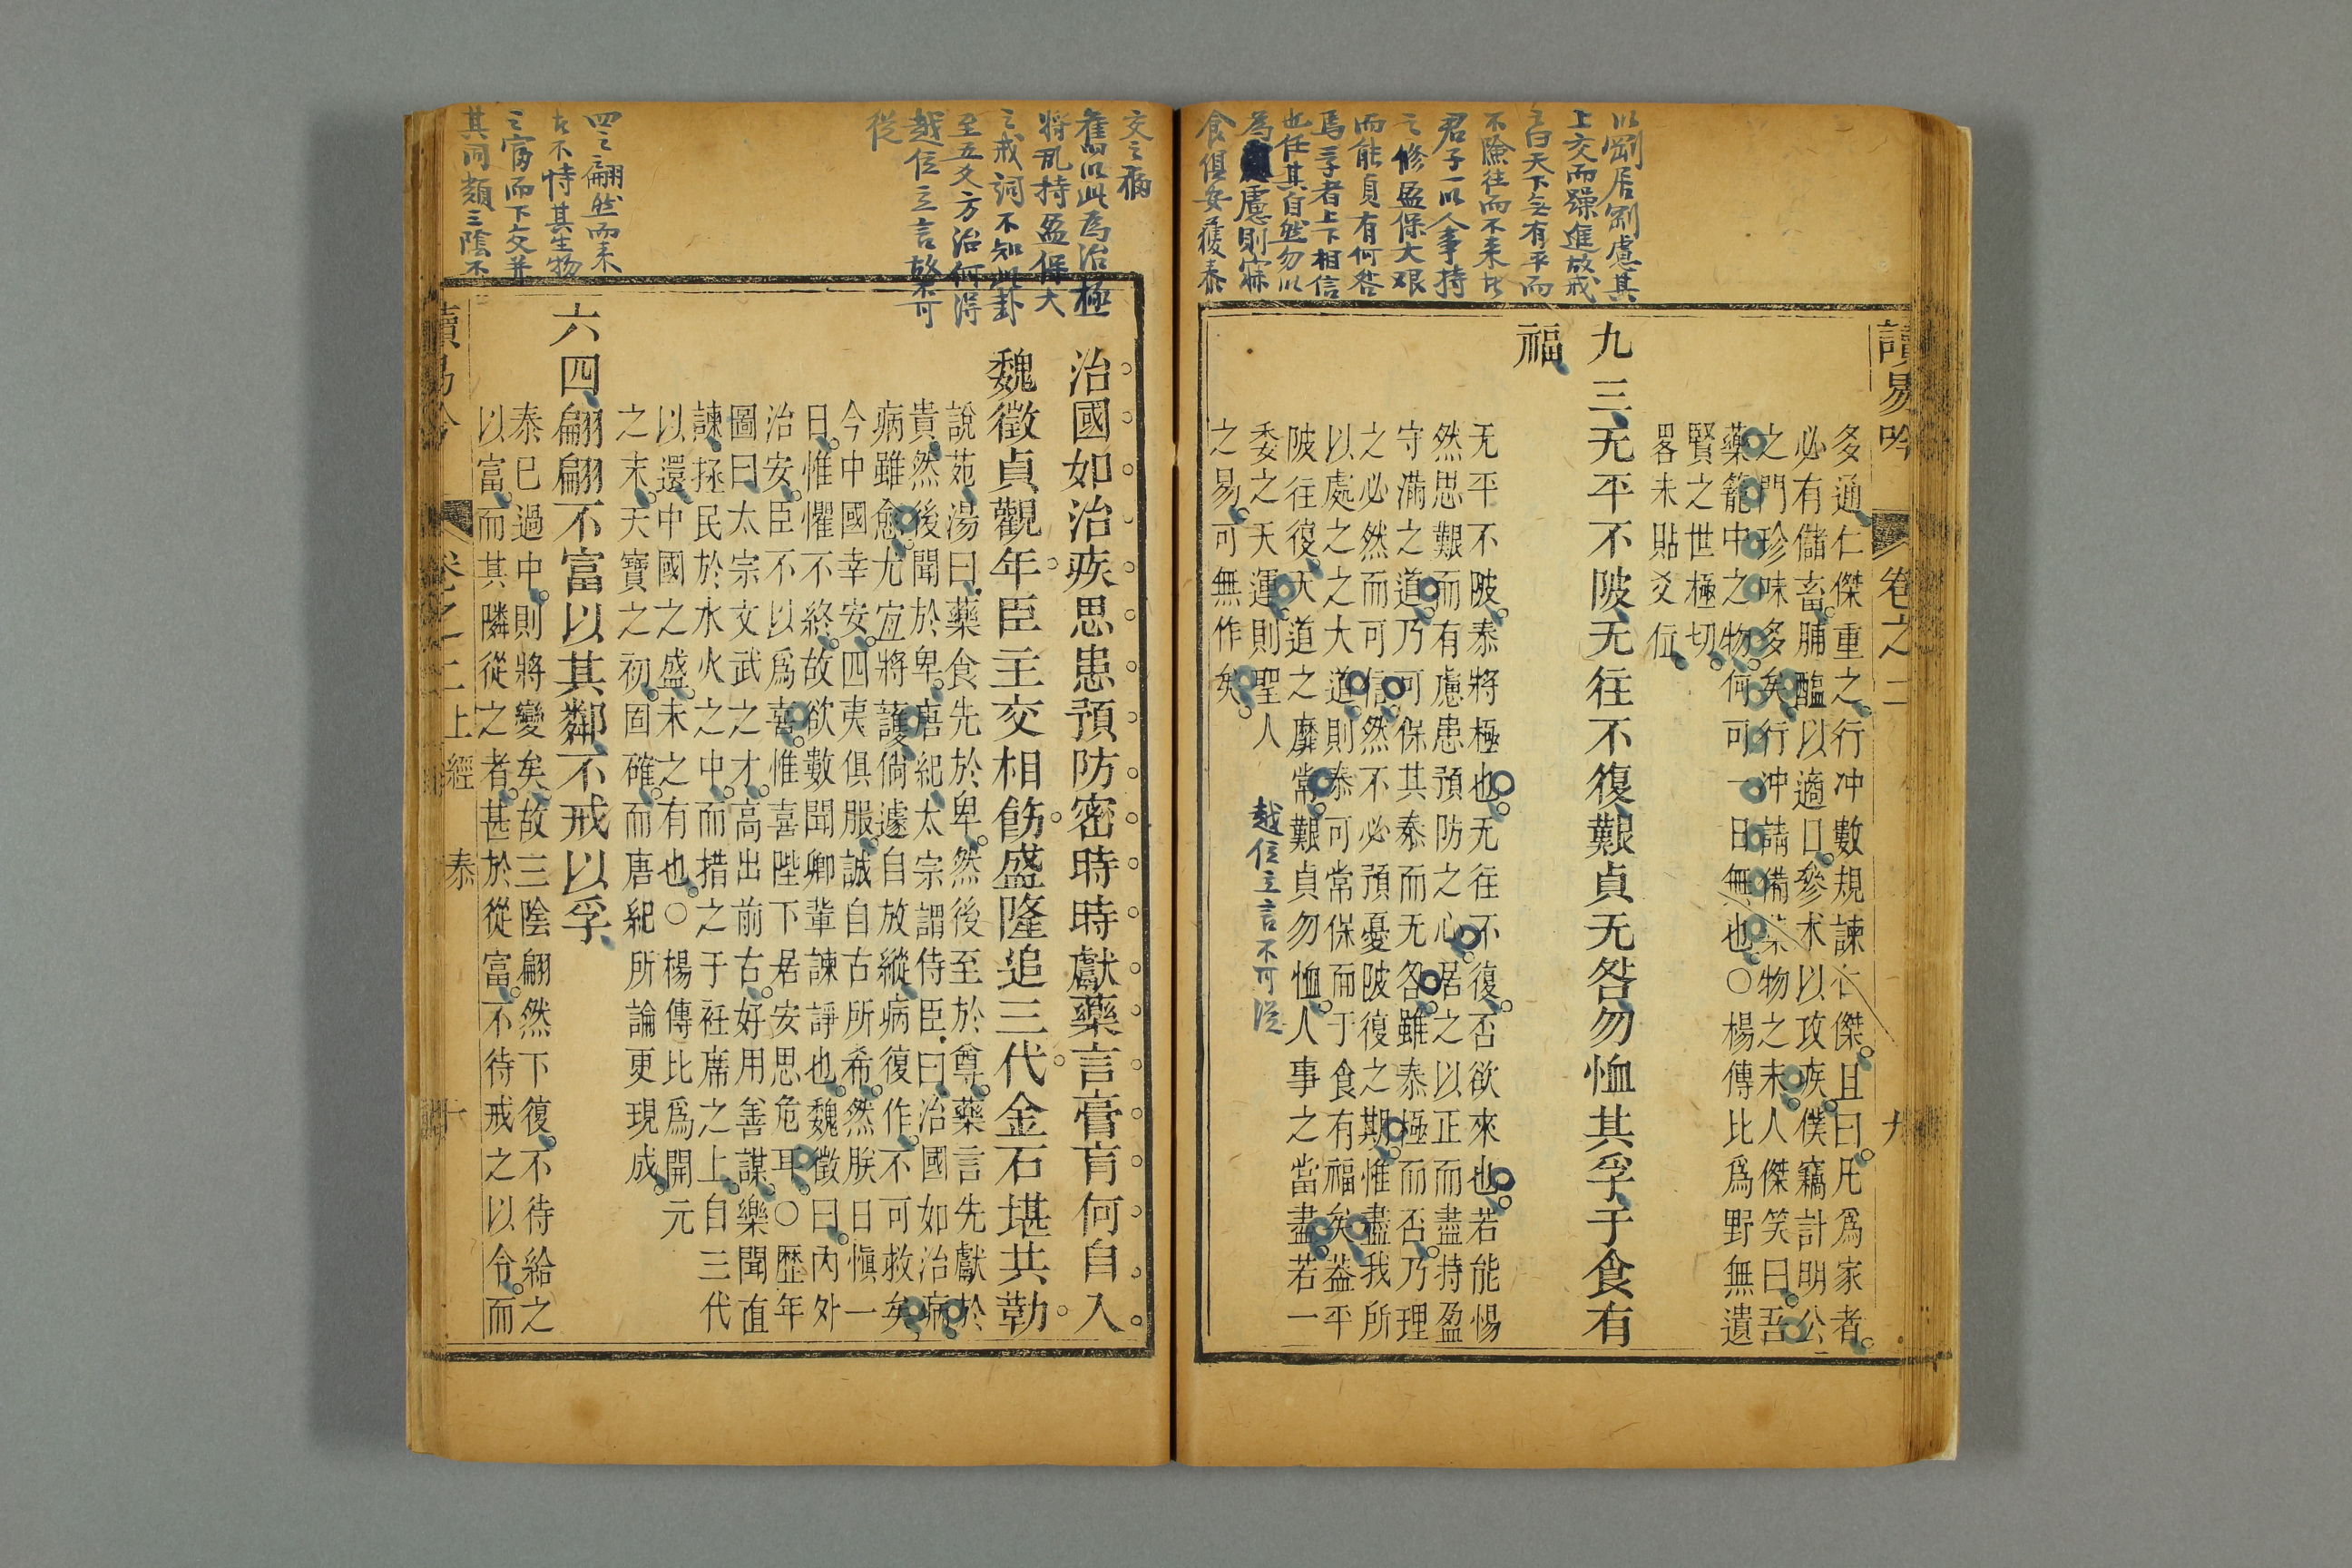 讀易吟
卷之二
九
以剛居剛慮其
上交而躁進故戒
之曰天下無有平而
不險往而不来者
君子一以人事持
之修盈保大艰
而能貞有何咎
焉孚者上下相信
也任其自然勿以
為慮則寐
食俱安獲泰
多通仁傑重之行冲數規諫仁傑且曰凡爲家者
必有儲畜脯醢以適口參术以攻疾僕竊計明公
之門珍味多矣行冲請備藥物之末人傑笑曰吾
藥籠中之物何可一日無也○楊傳比爲野無遺
賢之世極切
畧未貼爻位
九三无平不陂无往不復艱貞无咎勿恤其孚于食有
福
无平不陂泰將極也无往不復否欲來也若能惕
然思艱而有慮患預防之心居之以正而盡持盈
守滿之道乃可保其泰而无咎雖泰極而否乃理
之必然而可信然不必預憂陂復之期惟盡我所
以處之之大道則泰可常保而于食有福矣葢平
陂往復天道之靡常艱貞勿恤人事之當盡若一
委之天運則聖人
越位立言不可從
之易可無作矣
交之病
舊以此爲治極
將亂持盈保大
之戒詞不知此卦
至五爻方治何得
越位立言
從
四之翩然而来
者不恃其生物
之富而下交并
其同類三陰不
治國如治疾思患預防密時時獻藥言膏肓何自入
魏徵貞觀年臣主交相飭盛隆追三代金石堪共勒
說苑湯曰藥食先於卑然後至於尊藥言先獻於
貴然後聞於卑唐紀太宗謂侍臣曰治國如治病
病雖愈尤宜將護倘遽自放縱病復作不可救矣
今中國幸安四夷俱服誠自古所希然朕日愼一
日惟懼不終故欲數聞卿輩諫諍也魏徵曰內外
治安臣不以爲喜惟喜陛下居安思危耳○歷年
圖曰太宗文武之才高出前古好用善謀樂聞直
諫拯民於水火之中而措之于衽席之上自三代
以還中國之盛未之有也○楊傳比爲開元
之末天寶之初固確而唐紀所論更現成
六四翩翩不富以其鄰不戒以孚
泰已過中則將變矣故三陰翩然下復不待給之
以富而其隣從之者甚於從富不待戒之以令而
讀易吟
卷之二上經
泰
十